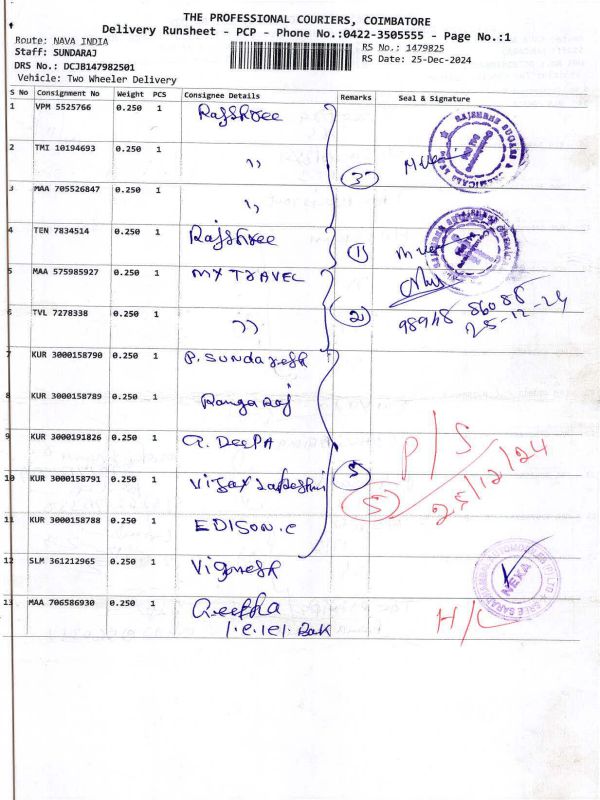 THE PROFESSIONAL COURIERS, COIMBATORE
Delivery Runsheet - PCP - Phone No.:0422-3505555 - Page No.:1
Route: NAVA INDIA
RS No.: 1479825
Staff: SUNDARAJ
RS Date: 25-Dec-2024
DRS No.: DCJB147982501
Vehicle: Two Wheeler Delivery
S No Consignment No Weight PCS Consignee Details Remarks Seal & Signature
1 VPM 5525766 0.250 1 Rajshree
2 TMI 10194693 0.250 1 ,, 3
3 MAA 705526847 0.250 1 ,,
4 TEN 7834514 0.250 1 Rajshree 1
5 MAA 575985927 0.250 1 MY TRAVEL
6 TVL 7278338 0.250 1 ,, 2 98948 86086
25-12-24
7 KUR 3000158790 0.250 1 P. SUNDARESH
8 KUR 3000158789 0.250 1 Rangaraj
9 KUR 3000191826 0.250 1 A. DEEPA P/S
10 KUR 3000158791 0.250 1 Vijay 5 5 25/12/24
11 KUR 3000158788 0.250 1 EDISON.C
12 SLM 361212965 0.250 1 Vignesh
13 MAA 706586930 0.250 1 Geetha H/C